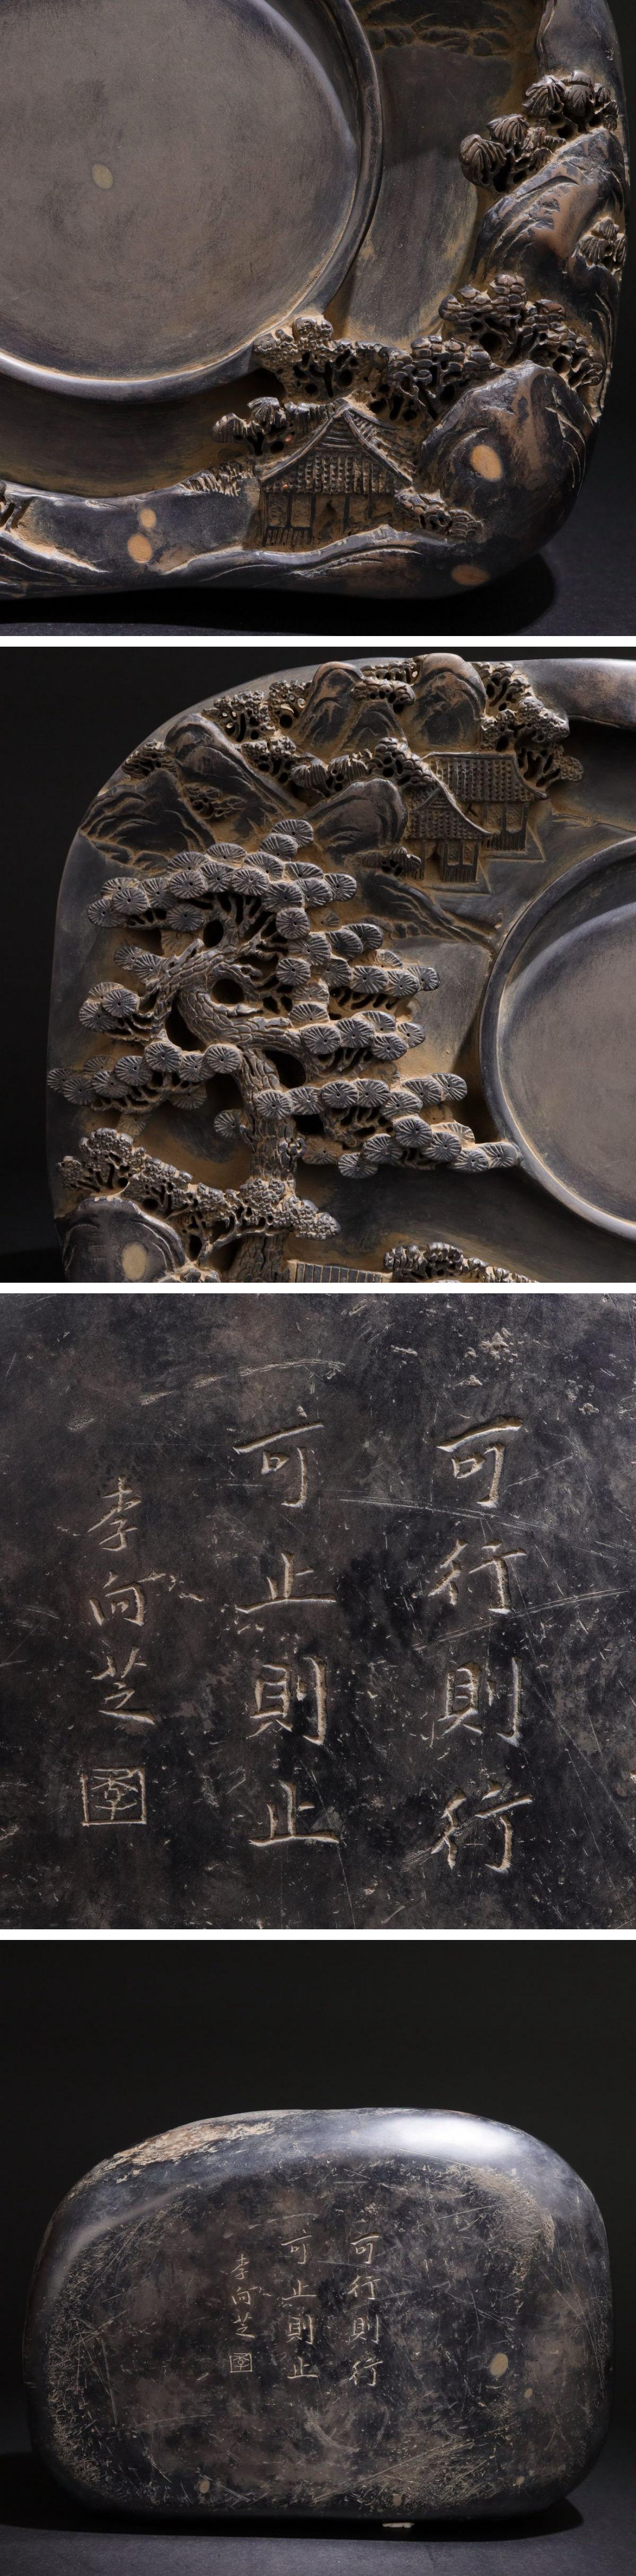 可行則行
可止則止
李向芝
李
可行則行
可止則止
李向芝
李